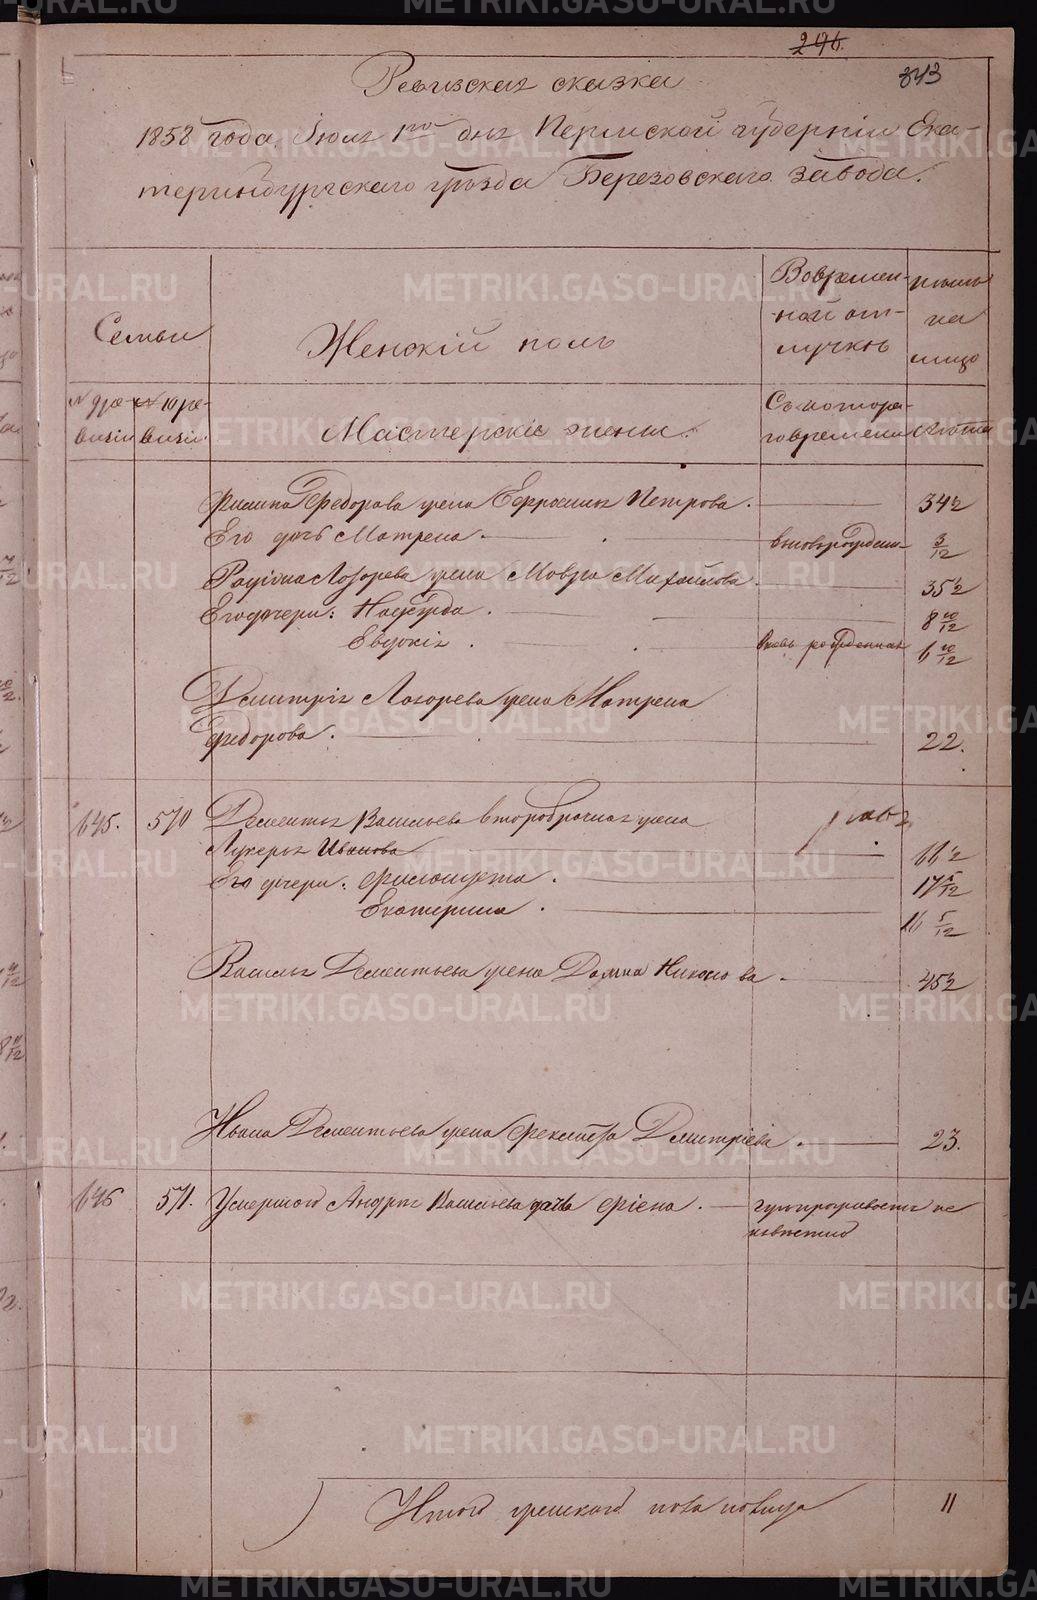 296.
343
Ревизская сказка
1858 года Июля 1го дня Пермской губернии Ека-
теринбургскаго уезда Березовскаго завода.
Семьи
Женскій полъ
Во времен-
ной от-
лучке
ныне
на
лицо
№ 9 ре-
визии
№ 10 ре-
визии.
Мастерскіе жены.
Съ котора-
го времени
лета
Федорова жена Ефросинья Петрова. 34½
Его дочь Матрена. 3/12
Родіона Лазорева жена Мавра Михайлова 35½
Его дочери: Надежда. 8 10/12
Евдокія. вновь рожденная 6 10/12
Дмитрія Лазорева жена Матрена
Федорова. 22.
645. 570 Дементья Васильева второбрачная жена
Лукерья Иванова
Его дочери: 17 5/12
Екатерина. 16 5/12
Василья Дементьева жена Домна Никонова 45½
Ивана Дементьева жена Дмитріева. 23.
646 571. Умершаго Андрея Васильева дочь
не
известно
Итого женскаго пола на лицо 11
METRIKI.GASO-URAL.RU